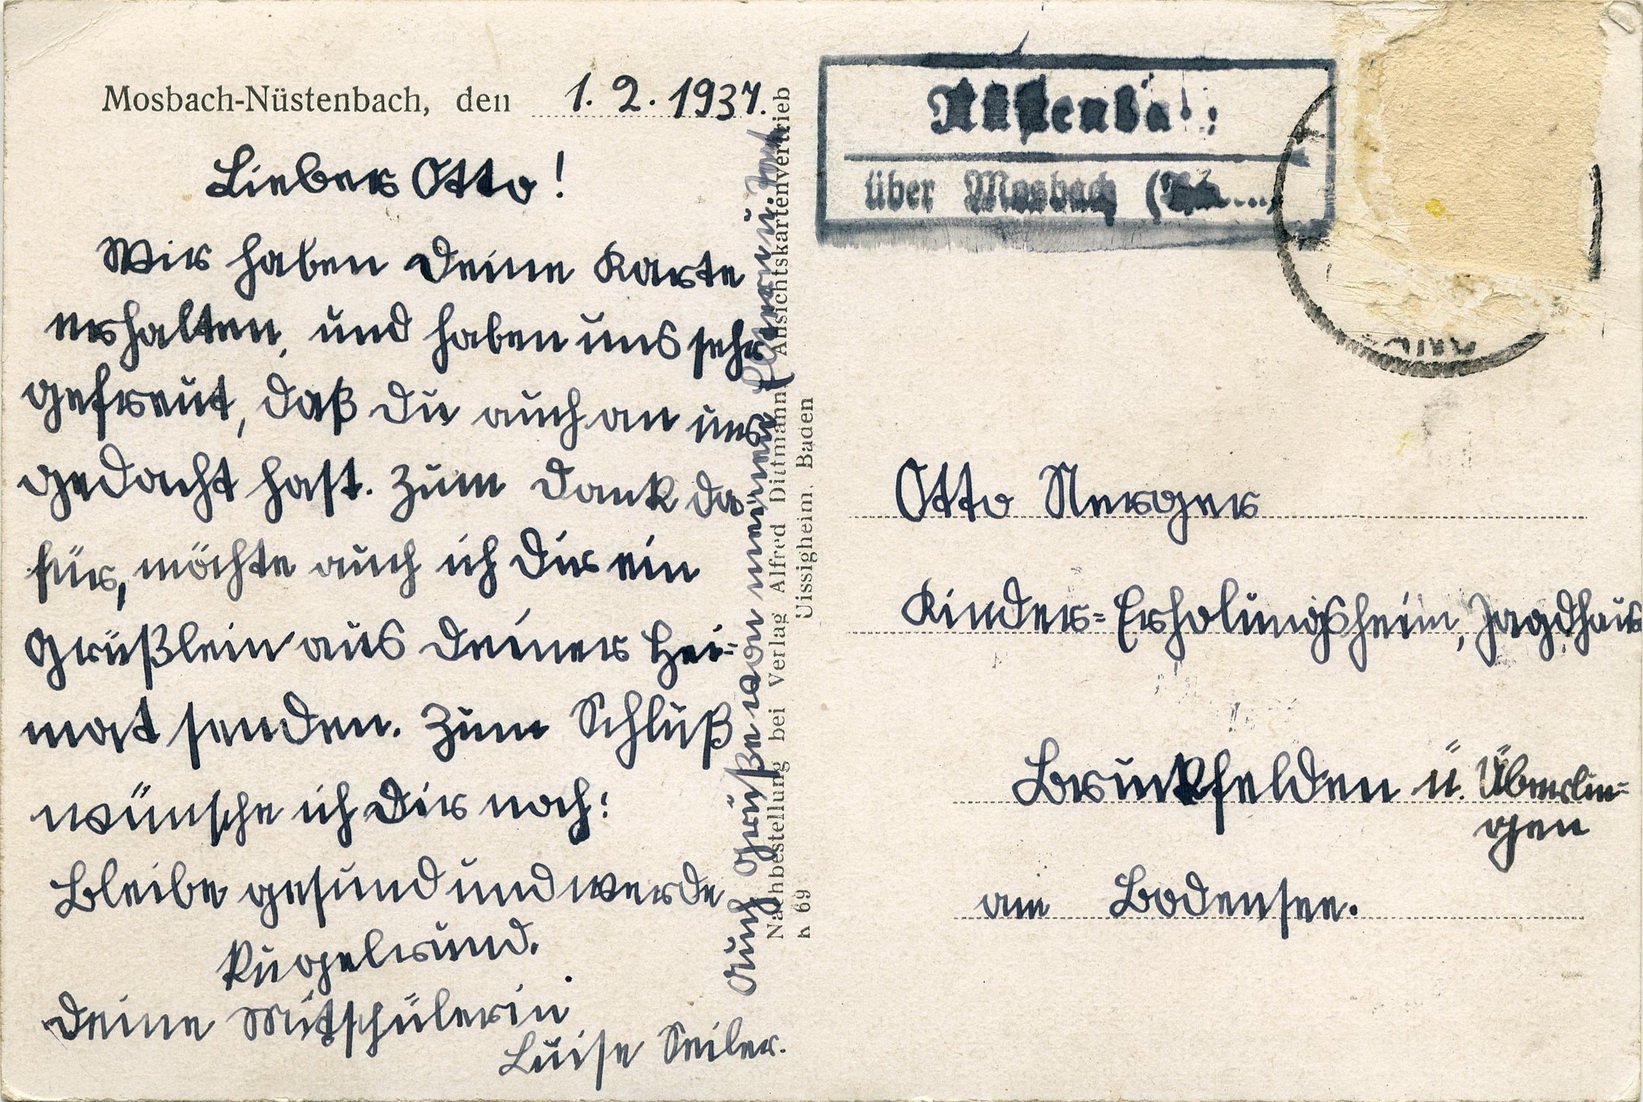 Mosbach-Nüstenbach, den 1. 2. 1937.
Lieber Otto!
Wir haben Deine Karte
erhalten, und haben uns sehr
gefreut, daß Du auch an uns
gedacht hast. Zum Dank da
für, möchte auch ich Dir ein
Grüßlein aus Deiner Hei-
mat senden. Zum Schluß
wünsche ich Dir noch:
Bleibe gesund und werde
kugelrund.
Deine Mitschülerin
Luise Seiler.
Auch Grüße von meinen Eltern u.
Nachbestellung bei Verlag Alfred Dittmann, Ansichtskartenvertrieb
Uissigheim, Baden
h 69
über Mosbach
Otto Nerger
Kinder-Erholungsheim, Jagdhaus
Bruckfelden ü. Überlin-
gen
am Bodensee.